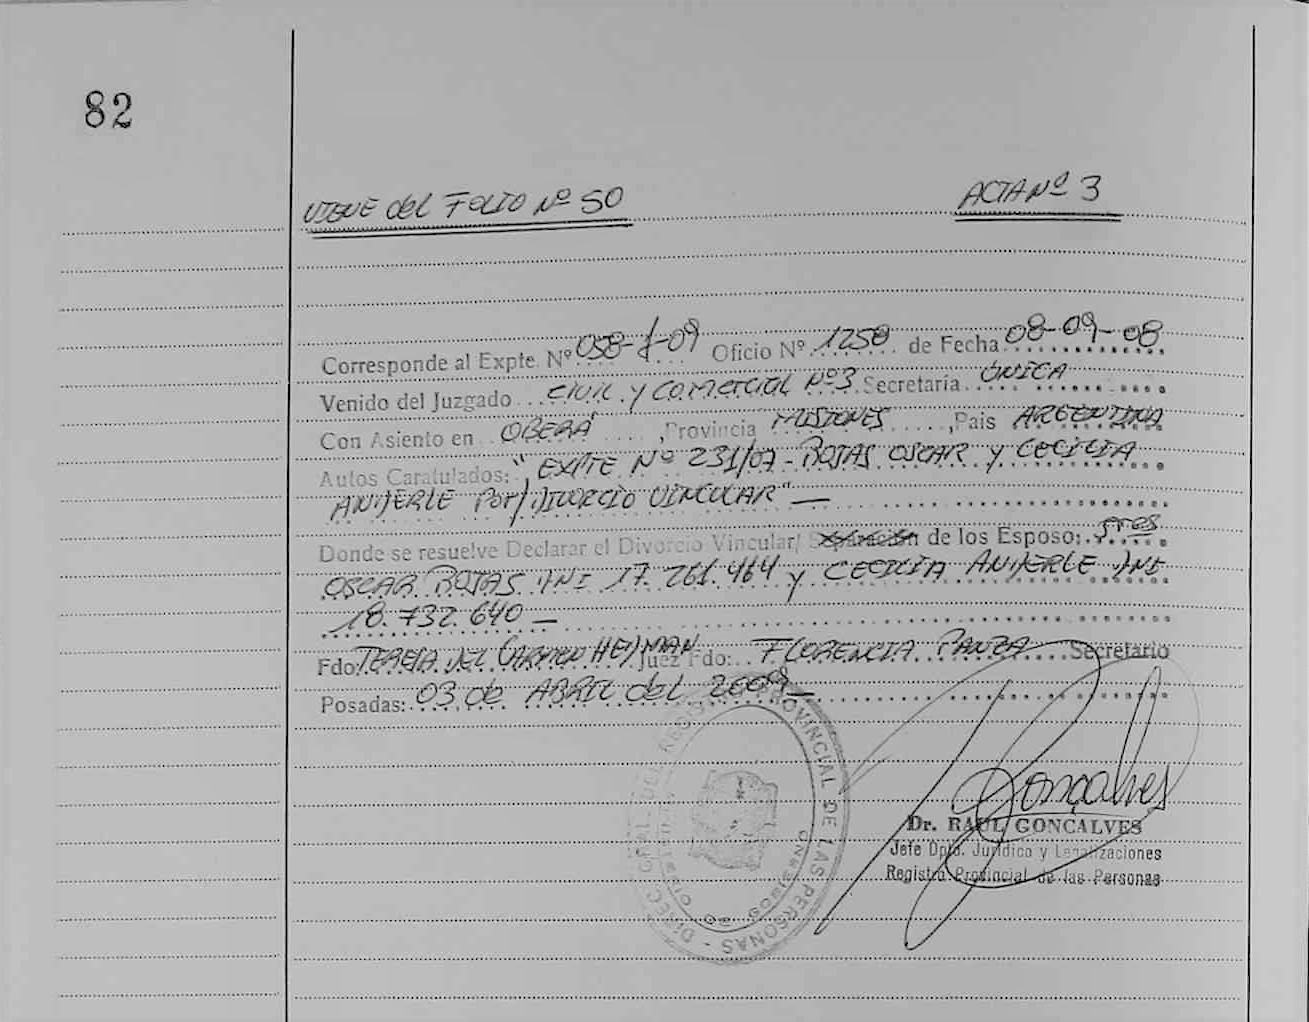 82
VIENE del FOLIO Nº 50
ACTA Nº 3
Corresponde al Expte. Nº 058-f-09 Oficio Nº 1258 de Fecha 08-09-08
Venido del Juzgado CIVIL y COMERCIAL Nº3 Secretaría ÚNICA
Con Asiento en OBERÁ ,Provincia MISIONES ,Pais ARGENTINA
Autos Caratulados: " EXPTE Nº 231/07 - ROJAS OSCAR y CECILIA
ANDERLE POR/ DIVORCIO VINCULAR" —
Donde se resuelve Declarar el Divorcio Vincular/ Separación de los Esposo: Sres
OSCAR ROJAS DNI 17.261.464 y CECILIA ANDERLE DNI
18.732.640 —
Fdo TERESA DEL CARMEN HEDMAN Juez Fdo: FLORENCIA PANZA Secretario
Posadas: 03 de ABRIL del 2009 —
DIREC. GRAL. DEL REGISTRO PROVINCIAL DE LAS PERSONAS -
GOBIERNO
Goncalves
Dr. RAUL GONCALVES
Jefe Dpto. Jurídico y Legalizaciones
Registro Provincial de las Personas